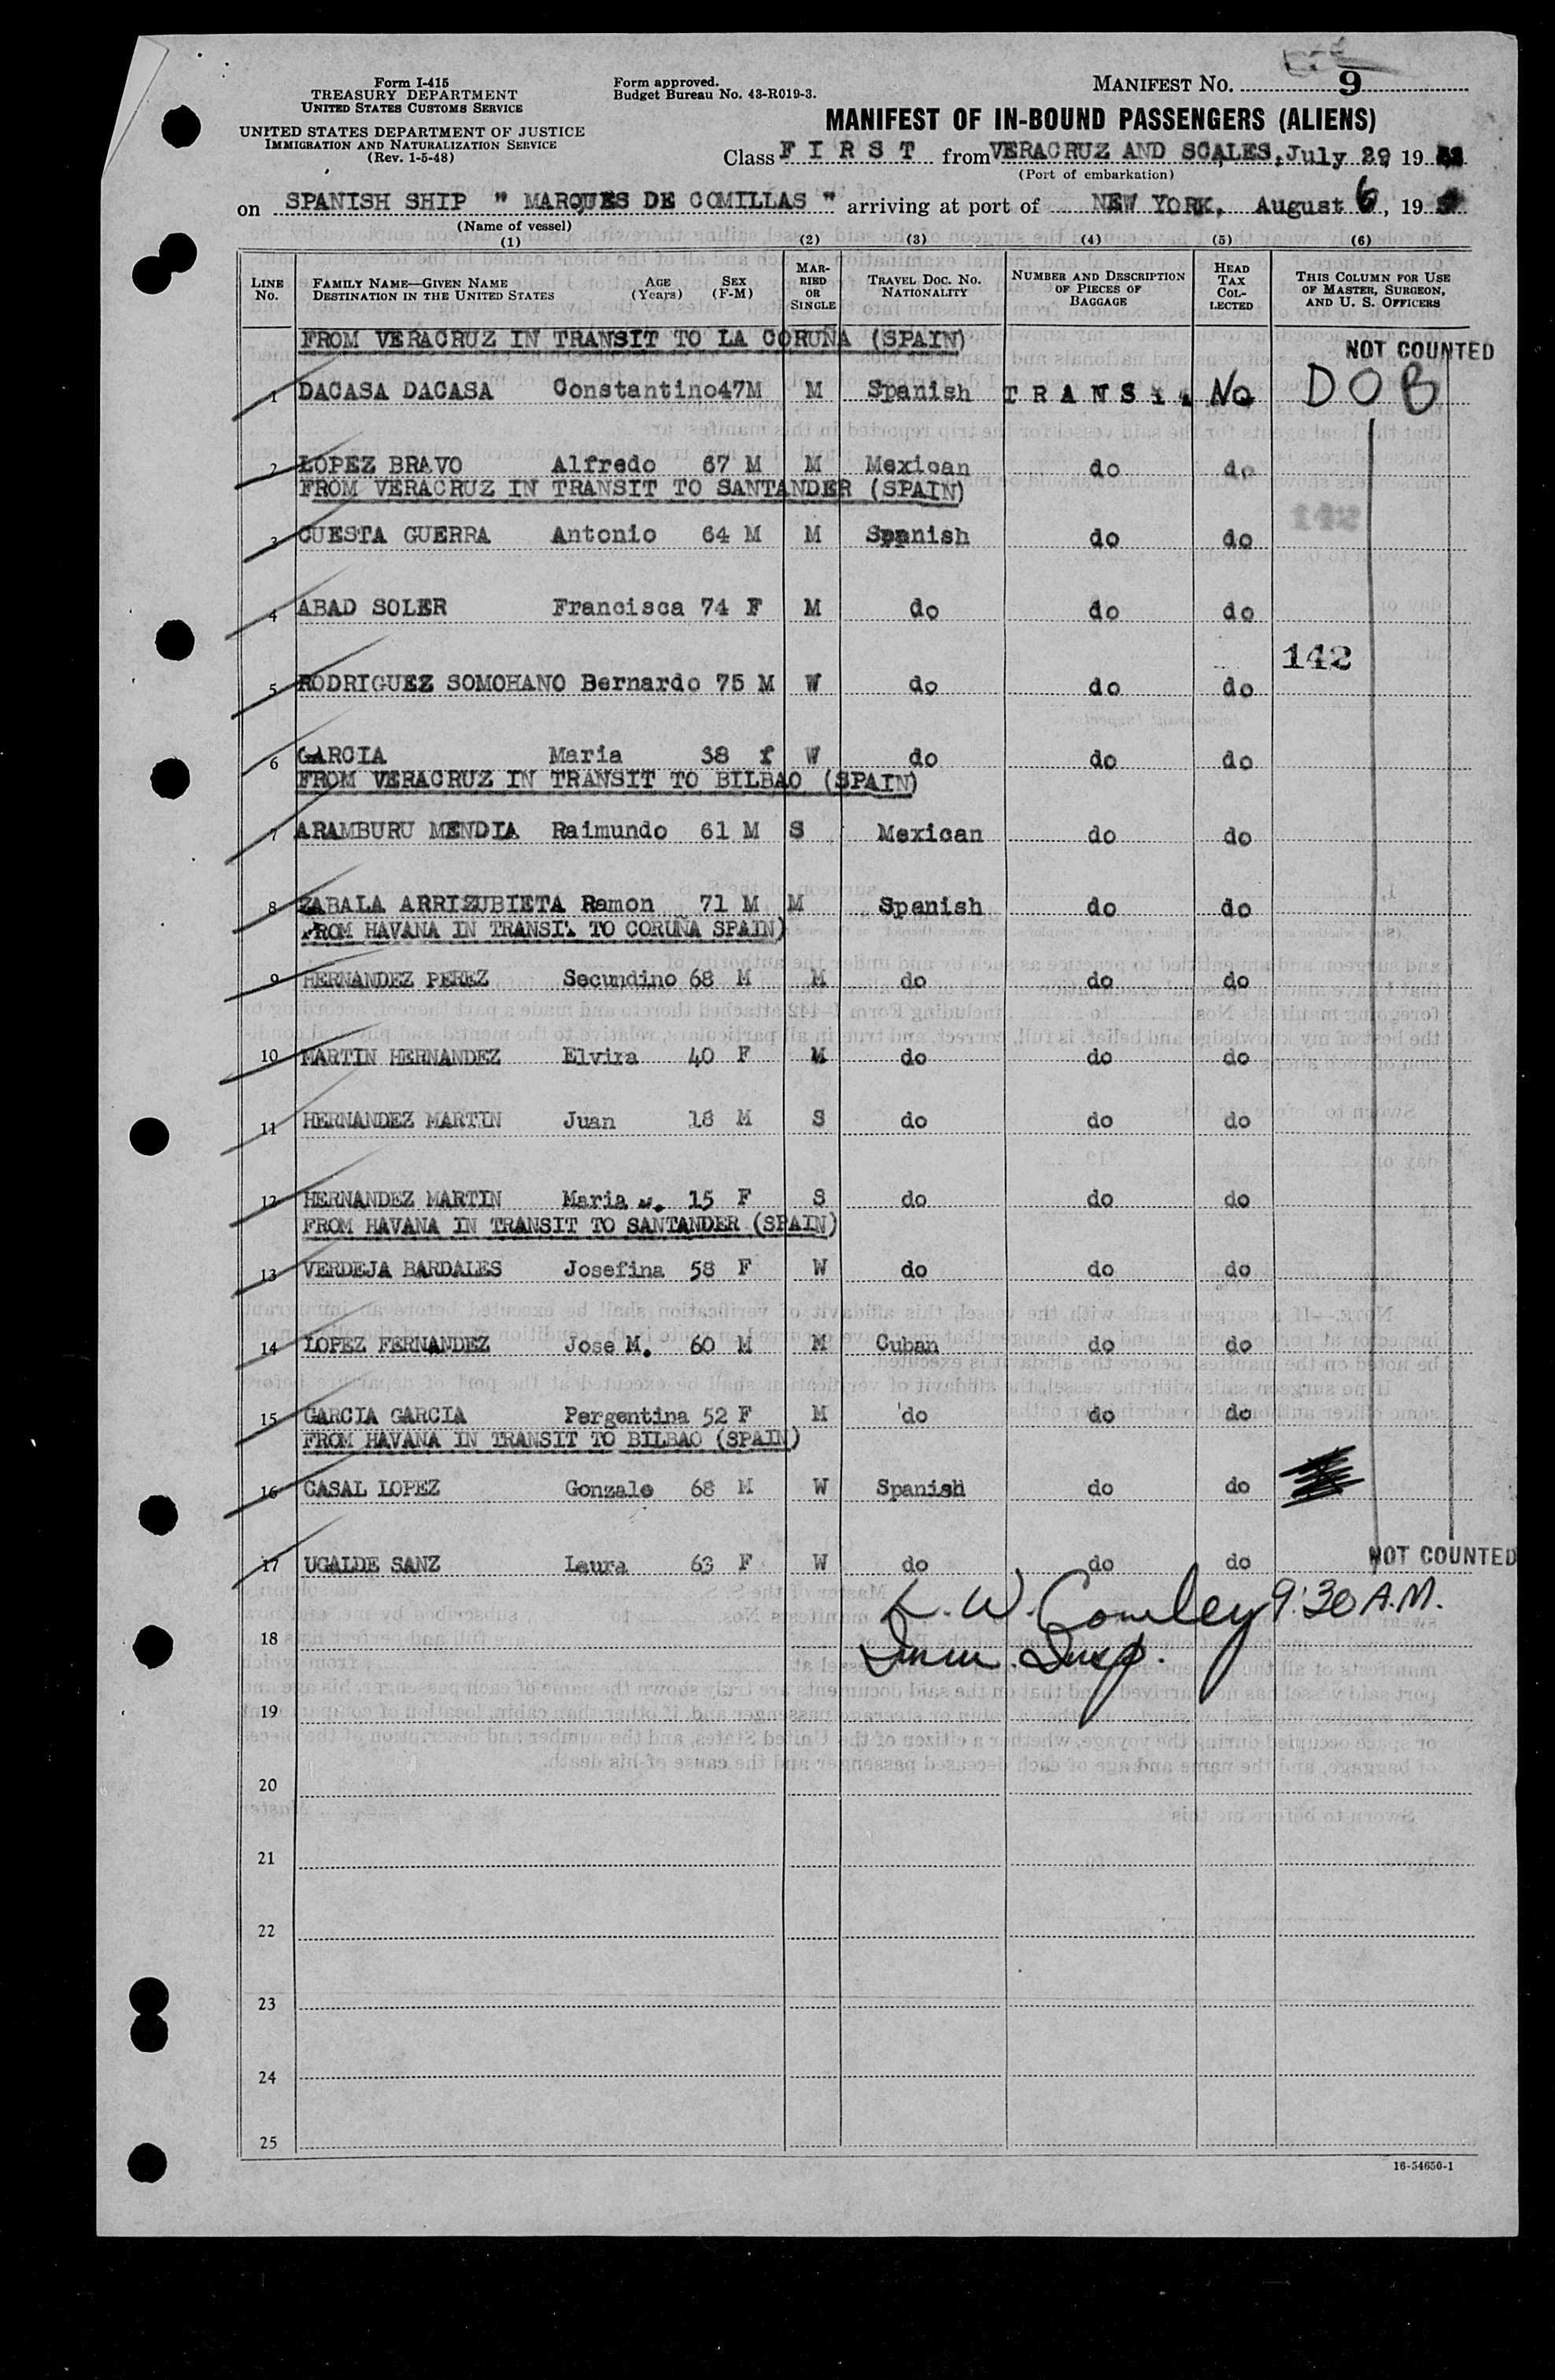 Form I-415
TREASURY DEPARTMENT
UNITED STATES CUSTOMS SERVICE
UNITED STATES DEPARTMENT OF JUSTICE
IMMIGRATION AND NATURALIZATION SERVICE
(Rev. 1-5-48)
Form approved.
Budget Bureau No. 43-R019-3.
MANIFEST NO. 9
MANIFEST OF IN-BOUND PASSENGERS (ALIENS)
Class F I R S T from VERACRUZ AND SCALES, July 29, 19
(Port of embarkation)
on SPANISH SHIP " MARQUES DE COMILLAS " arriving at port of NEW YORK, August 6, 19
(Name of vessel)
(1) (2) (3) (4) (5) (6)
LINE NO. FAMILY NAME—GIVEN NAME DESTINATION IN THE UNITED STATES AGE (Years) SEX (F-M) MARRIED OR SINGLE TRAVEL DOC. NO. NATIONALITY NUMBER AND DESCRIPTION OF PIECES OF BAGGAGE HEAD TAX COLLECTED THIS COLUMN FOR USE OF MASTER, SURGEON, AND U. S. OFFICERS
FROM VERACRUZ IN TRANSIT TO LA CORUÑA (SPAIN)
NOT COUNTED
1 DACASA DACASA Constantino 47 M M Spanish T R A N S i t No D O B
2 LOPEZ BRAVO Alfredo 67 M M Mexican do do
FROM VERACRUZ IN TRANSIT TO SANTANDER (SPAIN)
142
3 CUESTA GUERRA Antonio 64 M M Spanish do do
4 ABAD SOLER Francisca 74 F M do do do
142
5 RODRIGUEZ SOMOHANO Bernardo 75 M W do do do
6 GARCIA Maria 38 f W do do do
FROM VERACRUZ IN TRANSIT TO BILBAO (SPAIN)
7 ARAMBURU MENDIA Raimundo 61 M S Mexican do do
8 ZABALA ARRIZUBIETA Ramon 71 M M Spanish do do
FROM HAVANA IN TRANSIT TO CORUÑA SPAIN)
9 HERNANDEZ PEREZ Secundino 68 M M do do do
10 MARTIN HERNANDEZ Elvira 40 F M do do do
11 HERNANDEZ MARTIN Juan 18 M S do do do
12 HERNANDEZ MARTIN Maria 15 F S do do do
FROM HAVANA IN TRANSIT TO SANTANDER (SPAIN)
13 VERDEJA BARDALES Josefina 58 F W do do do
14 LOPEZ FERNANDEZ Jose M. 60 M M Cuban do do
15 GARCIA GARCIA Pergentina 52 F M do do do
FROM HAVANA IN TRANSIT TO BILBAO (SPAIN)
16 CASAL LOPEZ Gonzalo 68 M W Spanish do do
17 UGALDE SANZ Laura 63 F W do do do
NOT COUNTED
L. W. Cowley 9:30 A.M.
18 Imm. Insp.
19
20
21
22
23
24
25
16-54650-1